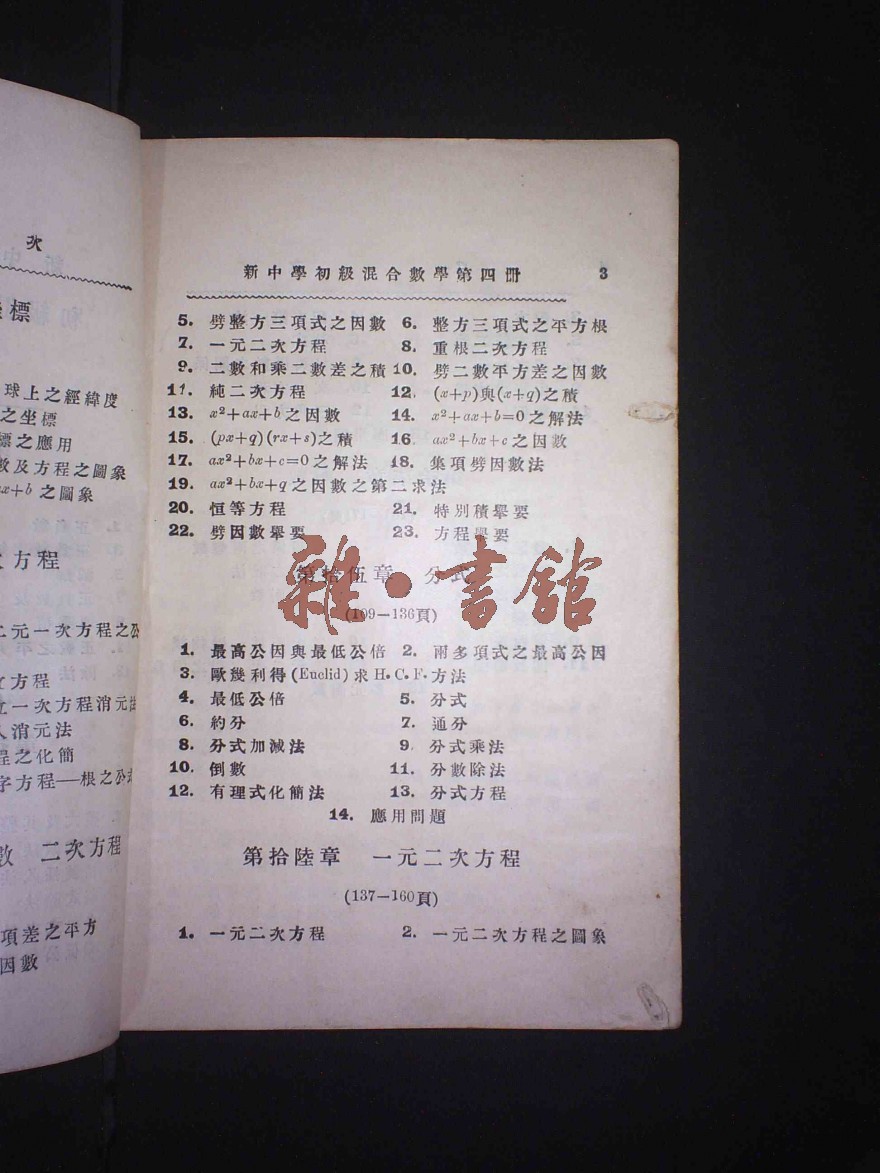 次
標
球上之經緯度
之坐標
標之應用
數及方程之圖象
ax+b 之圖象
方程
二元一次方程之公
方程
一次方程消元法
消元法
程之化簡
字方程—根之公式
數 二次方程
項差之平方
因數
新中學初級混合數學第四册 3
5. 劈整方三項式之因數 6. 整方三項式之平方根
7. 一元二次方程 8. 重根二次方程
9. 二數和乘二數差之積 10. 劈二數平方差之因數
11. 純二次方程 12. (x+p)與(x+q)之積
13. x²+ax+b 之因數 14. x²+ax+b=0 之解法
15. (px+q)(rx+s)之積 16. ax²+bx+c 之因數
17. ax²+bx+c=0 之解法 18. 集項劈因數法
19. ax²+bx+q 之因數之第二求法
20. 恒等方程 21. 特別積舉要
22. 劈因數舉要 23. 方程舉要
第拾伍章 分式
(109—136頁)
雜·書館
1. 最高公因與最低公倍 2. 兩多項式之最高公因
3. 歐幾利得(Euclid)求 H.C.F. 方法
4. 最低公倍 5. 分式
6. 約分 7. 通分
8. 分式加減法 9. 分式乘法
10. 倒數 11. 分數除法
12. 有理式化簡法 13. 分式方程
14. 應用問題
第拾陸章 一元二次方程
(137—160頁)
1. 一元二次方程 2. 一元二次方程之圖象